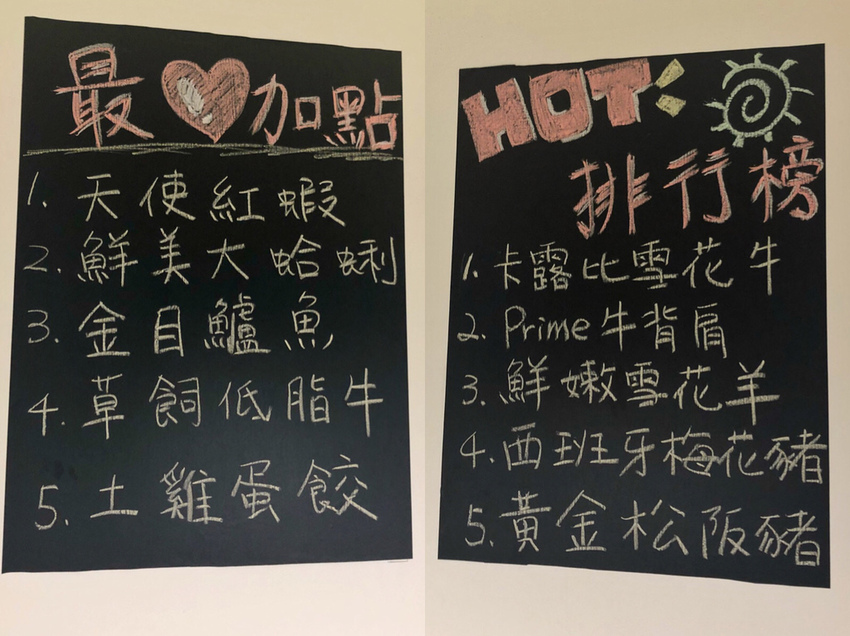 最加點
1. 天使紅蝦
2. 鮮美大蛤蜊
3. 金目鱸魚
4. 草飼低脂牛
5. 土雞蛋餃
HOT
排行榜
1. 卡露比雪花牛
2. Prime牛背肩
3. 鮮嫩雪花羊
4. 西班牙梅花豬
5. 黃金松阪豬